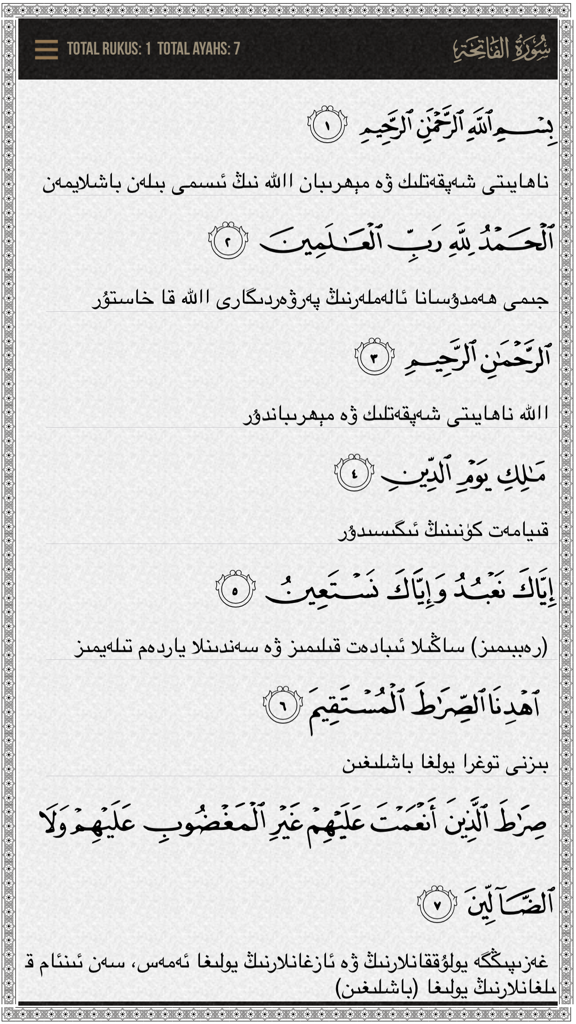 TOTAL RUKUS: 1 TOTAL AYAHS: 7 سُوۡرَةُ الفَاتِحَة
بِسۡمِ ٱللَّهِ ٱلرَّحۡمَٰنِ ٱلرَّحِيمِ ١
ناھايىتى شەپقەتلىك ۋە مېھرىبان االله نىڭ ئىسمى بىلەن باشلايمەن
ٱلۡحَمۡدُ لِلَّهِ رَبِّ ٱلۡعَٰلَمِينَ ٢
جىمى ھەمدۇسانا ئالەملەرنىڭ پەرۋەردىگارى االله قا خاستۇر
ٱلرَّحۡمَٰنِ ٱلرَّحِيمِ ٣
االله ناھايىتى شەپقەتلىك ۋە مېھرىباندۇر
مَٰلِكِ يَوۡمِ ٱلدِّينِ ٤
قىيامەت كۈنىنىڭ ئىگىسىدۇر
إِيَّاكَ نَعۡبُدُ وَإِيَّاكَ نَسۡتَعِينُ ٥
(رەببىمىز) ساڭىلا ئىبادەت قىلىمىز ۋە سەندىنلا ياردەم تىلەيمىز
ٱهۡدِنَا ٱلصِّرَٰطَ ٱلۡمُسۡتَقِيمَ ٦
بىزنى توغرا يولغا باشلىغىن
صِرَٰطَ ٱلَّذِينَ أَنۡعَمۡتَ عَلَيۡهِمۡ غَيۡرِ ٱلۡمَغۡضُوبِ عَلَيۡهِمۡ وَلَا
ٱلضَّآلِّينَ ٧
غەزىپىڭگە يولۇققانلارنىڭ ۋە ئازغانلارنىڭ يولىغا ئەمەس، سەن ئىنئام ق
ىلغانلارنىڭ يولىغا (باشلىغىن)